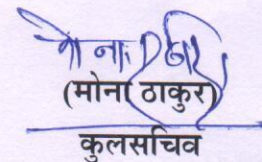 (मोना ठाकुर)
कुलसचिव